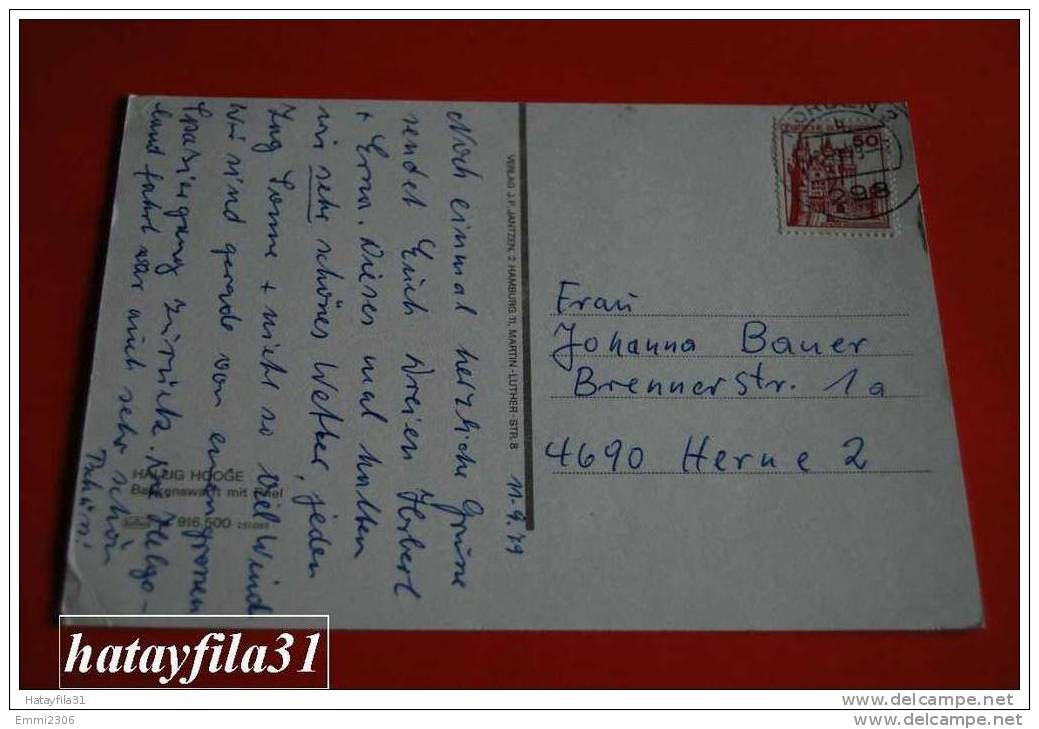 Noch einmal herzliche Grüsse
sendet Euch Dreien Herbert
+ Erna. Dieses mal hatten
wir sehr schönes Wetter, jeden
Tag Sonne + nicht so viel Wind
Wir sind gerade von einem grossen
Spaziergang zurück. Die Helgo-
landfahrt war auch sehr schön
Tschüss!
11.9.79
HALLIG HOOGE
mit
916 500
VERLAG J. P. JANTZEN, 2 HAMBURG 11, MARTIN-LUTHER-STR. 8
50
Frau
Johanna Bauer
Brennerstr. 1a
4690 Herne 2
hatayfila31
Hatayfila31
www.delcampe.net
Emmi2306
www.delcampe.net